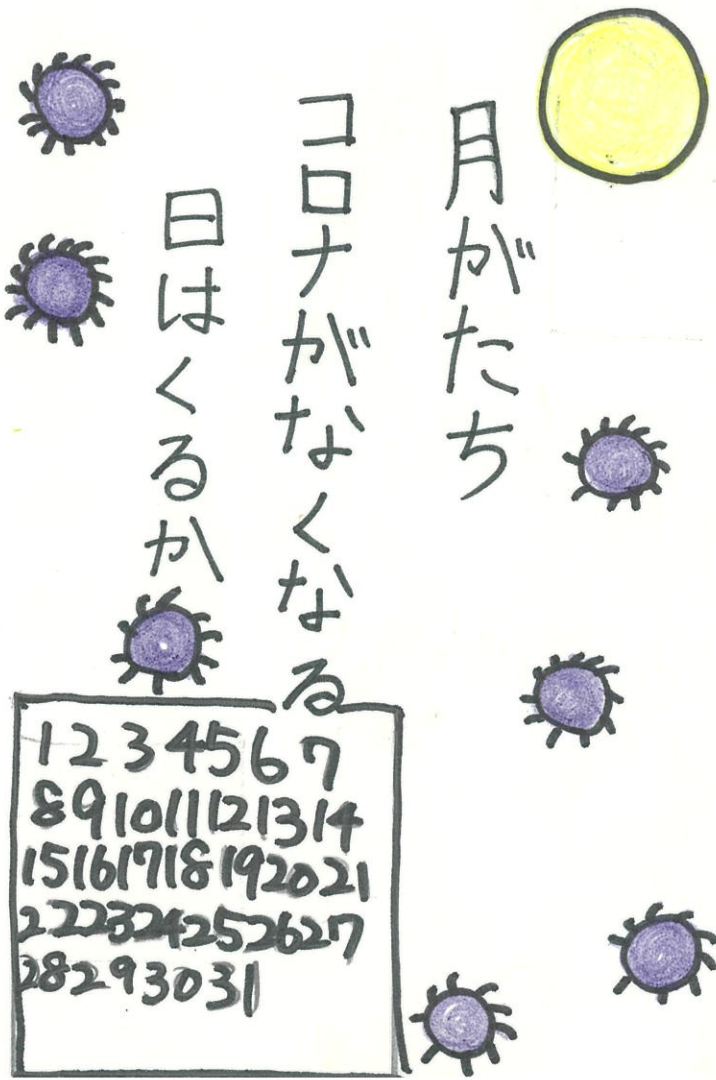 月がたち
コロナがなくなる
日はくるか
1 2 3 4 5 6 7
8 9 10 11 12 13 14
15 16 17 18 19 20 21
22 23 24 25 26 27
28 29 30 31